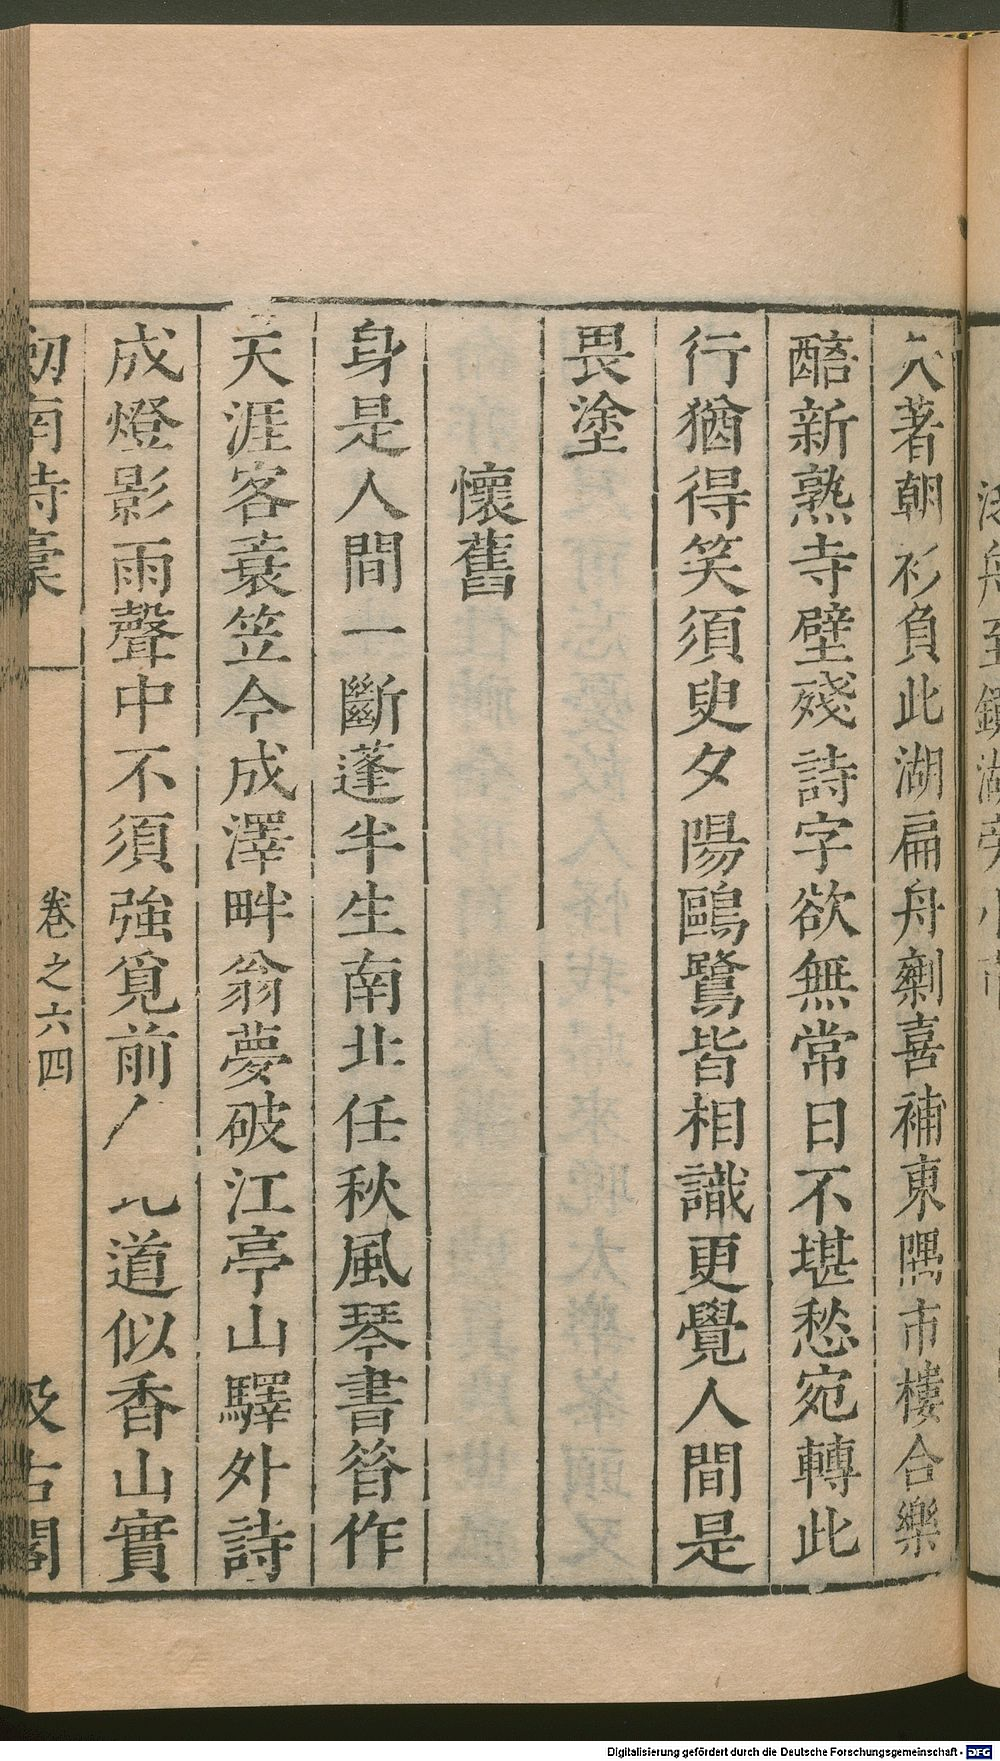 久著朝衫負此湖扁舟剩喜補東隅市樓合樂
醅新熟寺壁殘詩字欲無常日不堪愁宛轉此
行猶得笑須臾夕陽鷗鷺皆相識更覺人間是
畏塗
懷舊
身是人間一斷蓬半生南北任秋風琴書昝作
天涯客蓑笠今成澤畔翁夢破江亭山驛外詩
成燈影雨聲中不須強覓前人比道似香山實
劒南詩稾
卷之六四
汲古閣
Digitalisierung gefördert durch die Deutsche Forschungsgemeinschaft - DFG